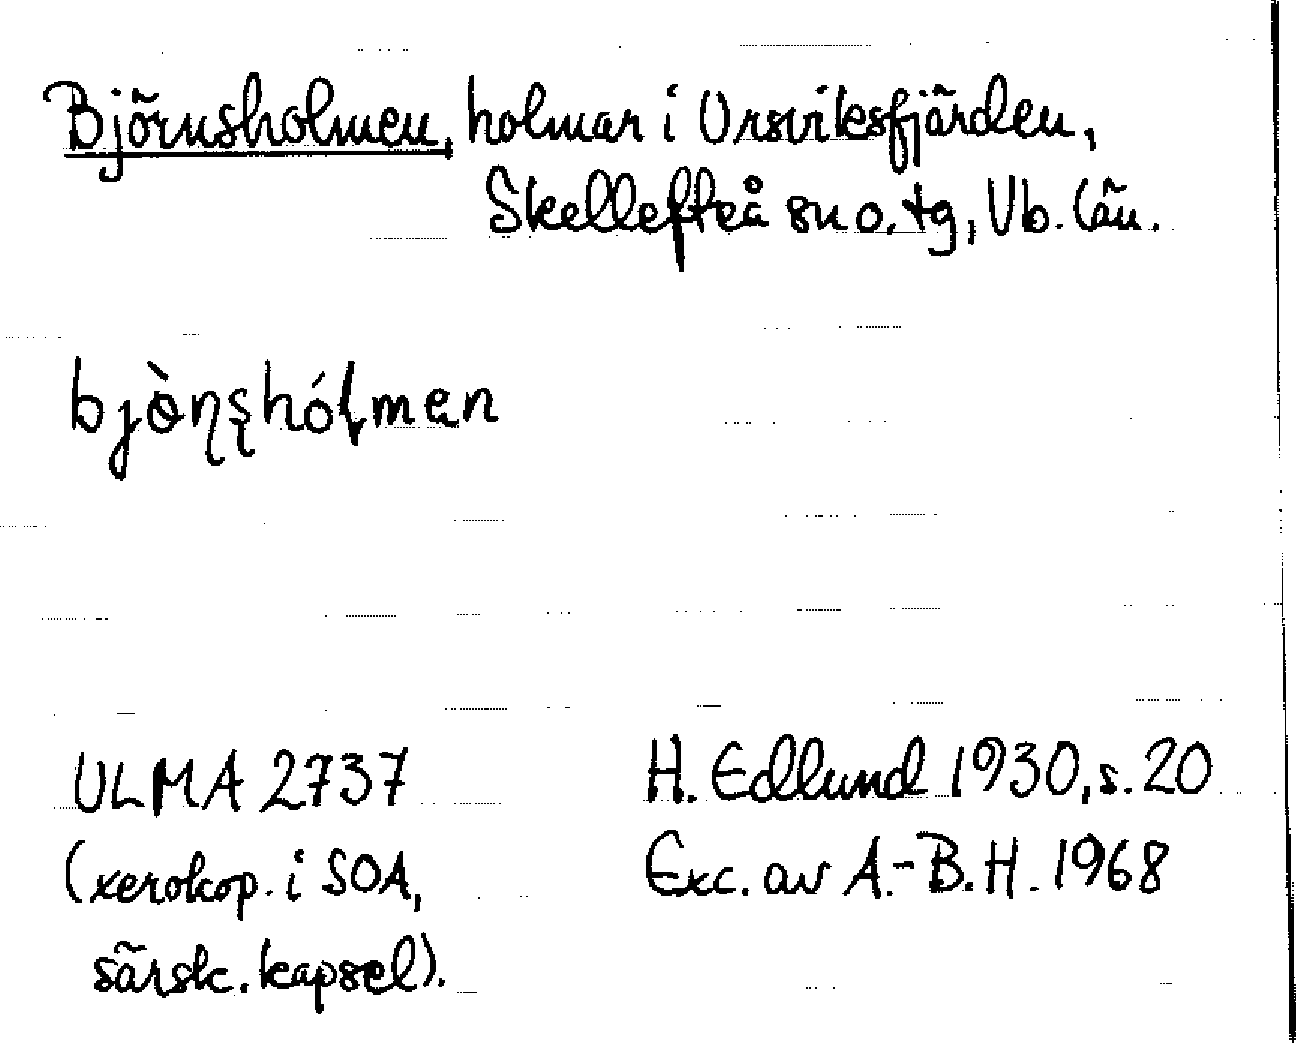 Björnsholmen, holmar i Ursviksfjärden,
Skellefteå sn o. tg, Vb. län.
bjòṇṣhóɭmen
ULMA 2737
(xerokop. i SOA,
särsk. kapsel).
H. Edlund 1930, s. 20
Exc. av A.-B.H. 1968